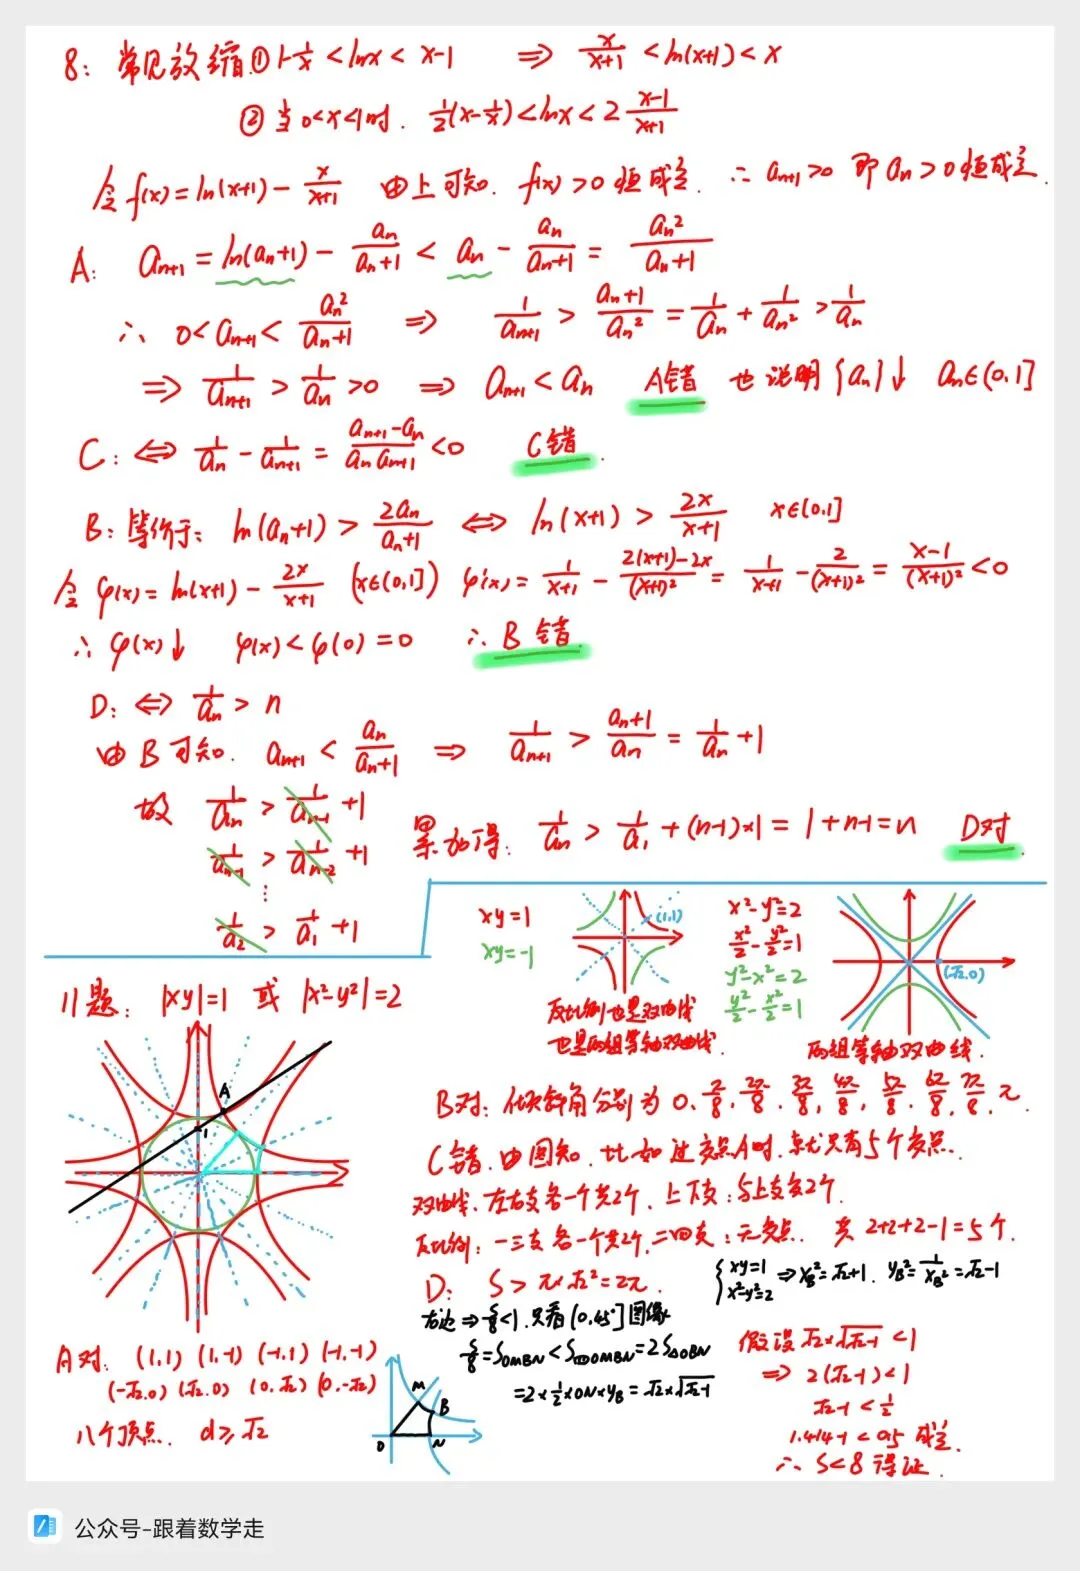 8: 常见放缩 ① 1-1/x < lnx < x-1 ⇒ x/(x+1) < ln(x+1) < x
② 当 0<x<1时. 1/2(x-1/x) < lnx < 2 (x-1)/(x+1)
令 f(x) = ln(x+1) - x/(x+1) 由上可知. f(x) >0 恒成立. ∴ aₙ₊₁>0 即 aₙ>0恒成立.
A: aₙ₊₁ = ln(aₙ+1) - aₙ/(aₙ+1) < aₙ - aₙ/(aₙ+1) = aₙ²/(aₙ+1)
∴ 0< aₙ₊₁ < aₙ²/(aₙ+1) ⇒ 1/aₙ₊₁ > (aₙ+1)/aₙ² = 1/aₙ + 1/aₙ² > 1/aₙ
⇒ 1/aₙ₊₁ > 1/aₙ >0 ⇒ aₙ₊₁ < aₙ A错 也说明{aₙ}↓ aₙ∈(0,1]
C: ⇔ 1/aₙ - 1/aₙ₊₁ = (aₙ₊₁-aₙ)/(aₙaₙ₊₁) <0 C错.
B: 等价于: ln(aₙ+1) > 2aₙ/(aₙ+1) ⇔ ln(x+1) > 2x/(x+1) x∈(0,1]
令 φ(x) = ln(x+1) - 2x/(x+1) (x∈(0,1]) φ'(x) = 1/(x+1) - (2(x+1)-2x)/(x+1)² = 1/(x+1) - 2/(x+1)² = (x-1)/(x+1)² <0
∴ φ(x)↓ φ(x) < φ(0) = 0 ∴ B错.
D: ⇔ 1/aₙ > n
由B可知. aₙ₊₁ < aₙ/(aₙ+1) ⇒ 1/aₙ₊₁ > (aₙ+1)/aₙ = 1/aₙ +1
故 1/aₙ > 1/aₙ₋₁ +1
1/aₙ₋₁ > 1/aₙ₋₂ +1
⋮
1/a₂ > 1/a₁ +1
累加得: 1/aₙ > 1/a₁ + (n-1)×1 = 1+n-1 = n D对
xy=1
xy=-1
(1,1)
反比例也是双曲线
也是两组等轴双曲线.
x²-y²=2
x²/2 - y²/2 = 1
y²-x²=2
y²/2 - x²/2 = 1
(√2,0)
两组等轴双曲线.
11题: |xy|=1 或 |x²-y²|=2
A
1
A对. (1,1) (1,-1) (-1,1) (-1,-1)
(-√2,0) (√2,0) (0,√2) (0,-√2)
八个顶点. d≥√2
B对: 倾斜角分别为 0. π/8. 2π/8. 3π/8. 4π/8. 5π/8. 6π/8. 7π/8. π.
C错. 由图知. 比如过交点A时. 就只有5个交点.
双曲线. 左右支各一个共2个. 上下支: 与上支交2个.
反比例: 一三支各一个共2个, 二四支: 无交点. 共 2+2+2-1=5个.
D: S > π×√2² = 2π.
{xy=1 x²-y²=2 ⇒ x_B² = √2+1. y_B² = 1/x_B² = √2-1
右边 ⇒ S/8 <1. 只看 [0,45°] 图像
S/8 = S_OMBN < 2S△OBN
= 2×1/2×ON×y_B = √2×√(√2-1)
M
B
O
N
假设 √2×√(√2-1) <1
⇒ 2(√2-1)<1
√2-1 < 1/2
1.414-1 < 0.5 成立.
∴ S<8 得证.
公众号-跟着数学走